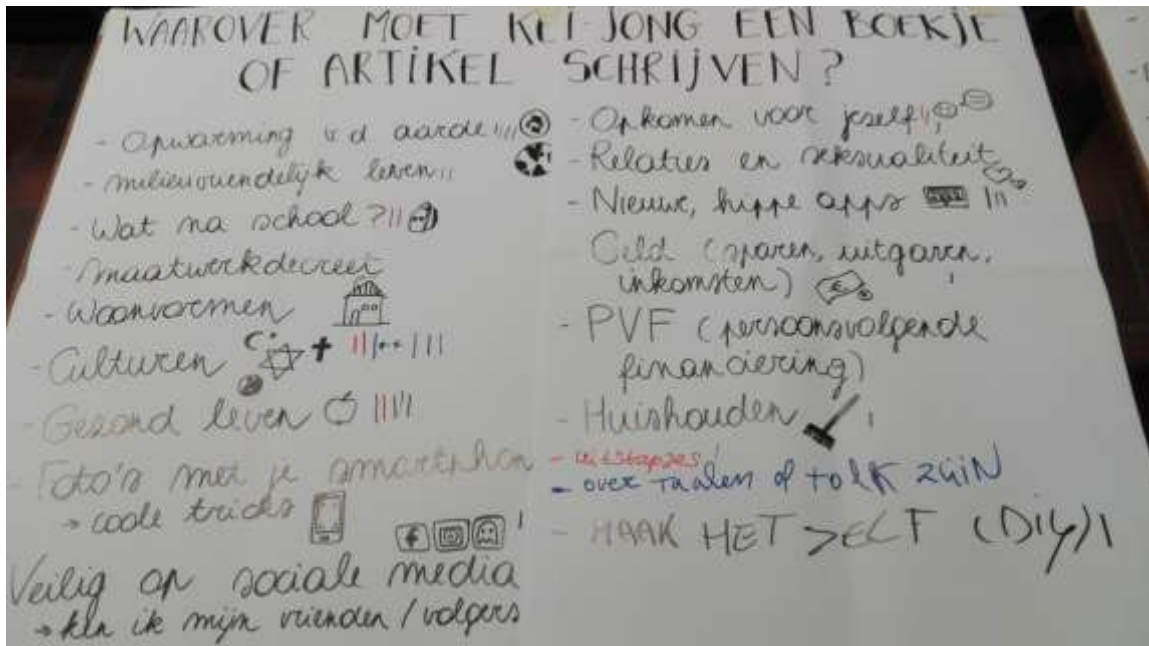 WAAROVER MOET KEI-JONG EEN BOEKJE
OF ARTIKEL SCHRIJVEN?
- Opwarming v d aarde
- milieuvriendelijk leven
- Wat na school?
- maatwerkdecreet
- Woonvormen
- Culturen
- Gezond leven
- Foto's met je smartphon
→ coole tricks
Veilig op sociale media
→ ken ik mijn vrienden / volgers
- Opkomen voor jezelf
- Relaties en seksualiteit
- Nieuwe, hippe apps
Geld (sparen, uitgaven,
inkomsten)
- PVF (persoonsvolgende
financiering)
- Huishouden
- uitstapjes
- over taalen of tolk zijn
- MAAK HET ZELF (Diy)